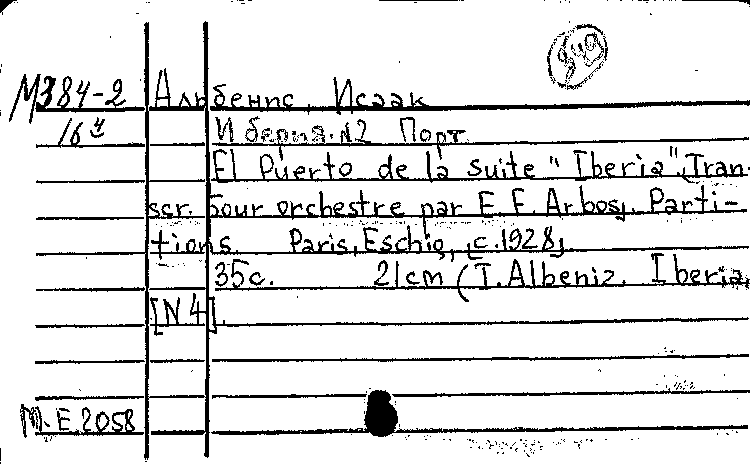 849
М384-2 Альбенис, Исаак
16ч Иберия. N2 Порт.
El Puerto de la suite "Iberia", [Tran-
scr. pour orchestre par E. F. Arbos]. Parti-
tions. Paris, Eschig, [c. 1928].
35c. 21cm (I. Albeniz. Iberia,
[N 4].
M.E.2058